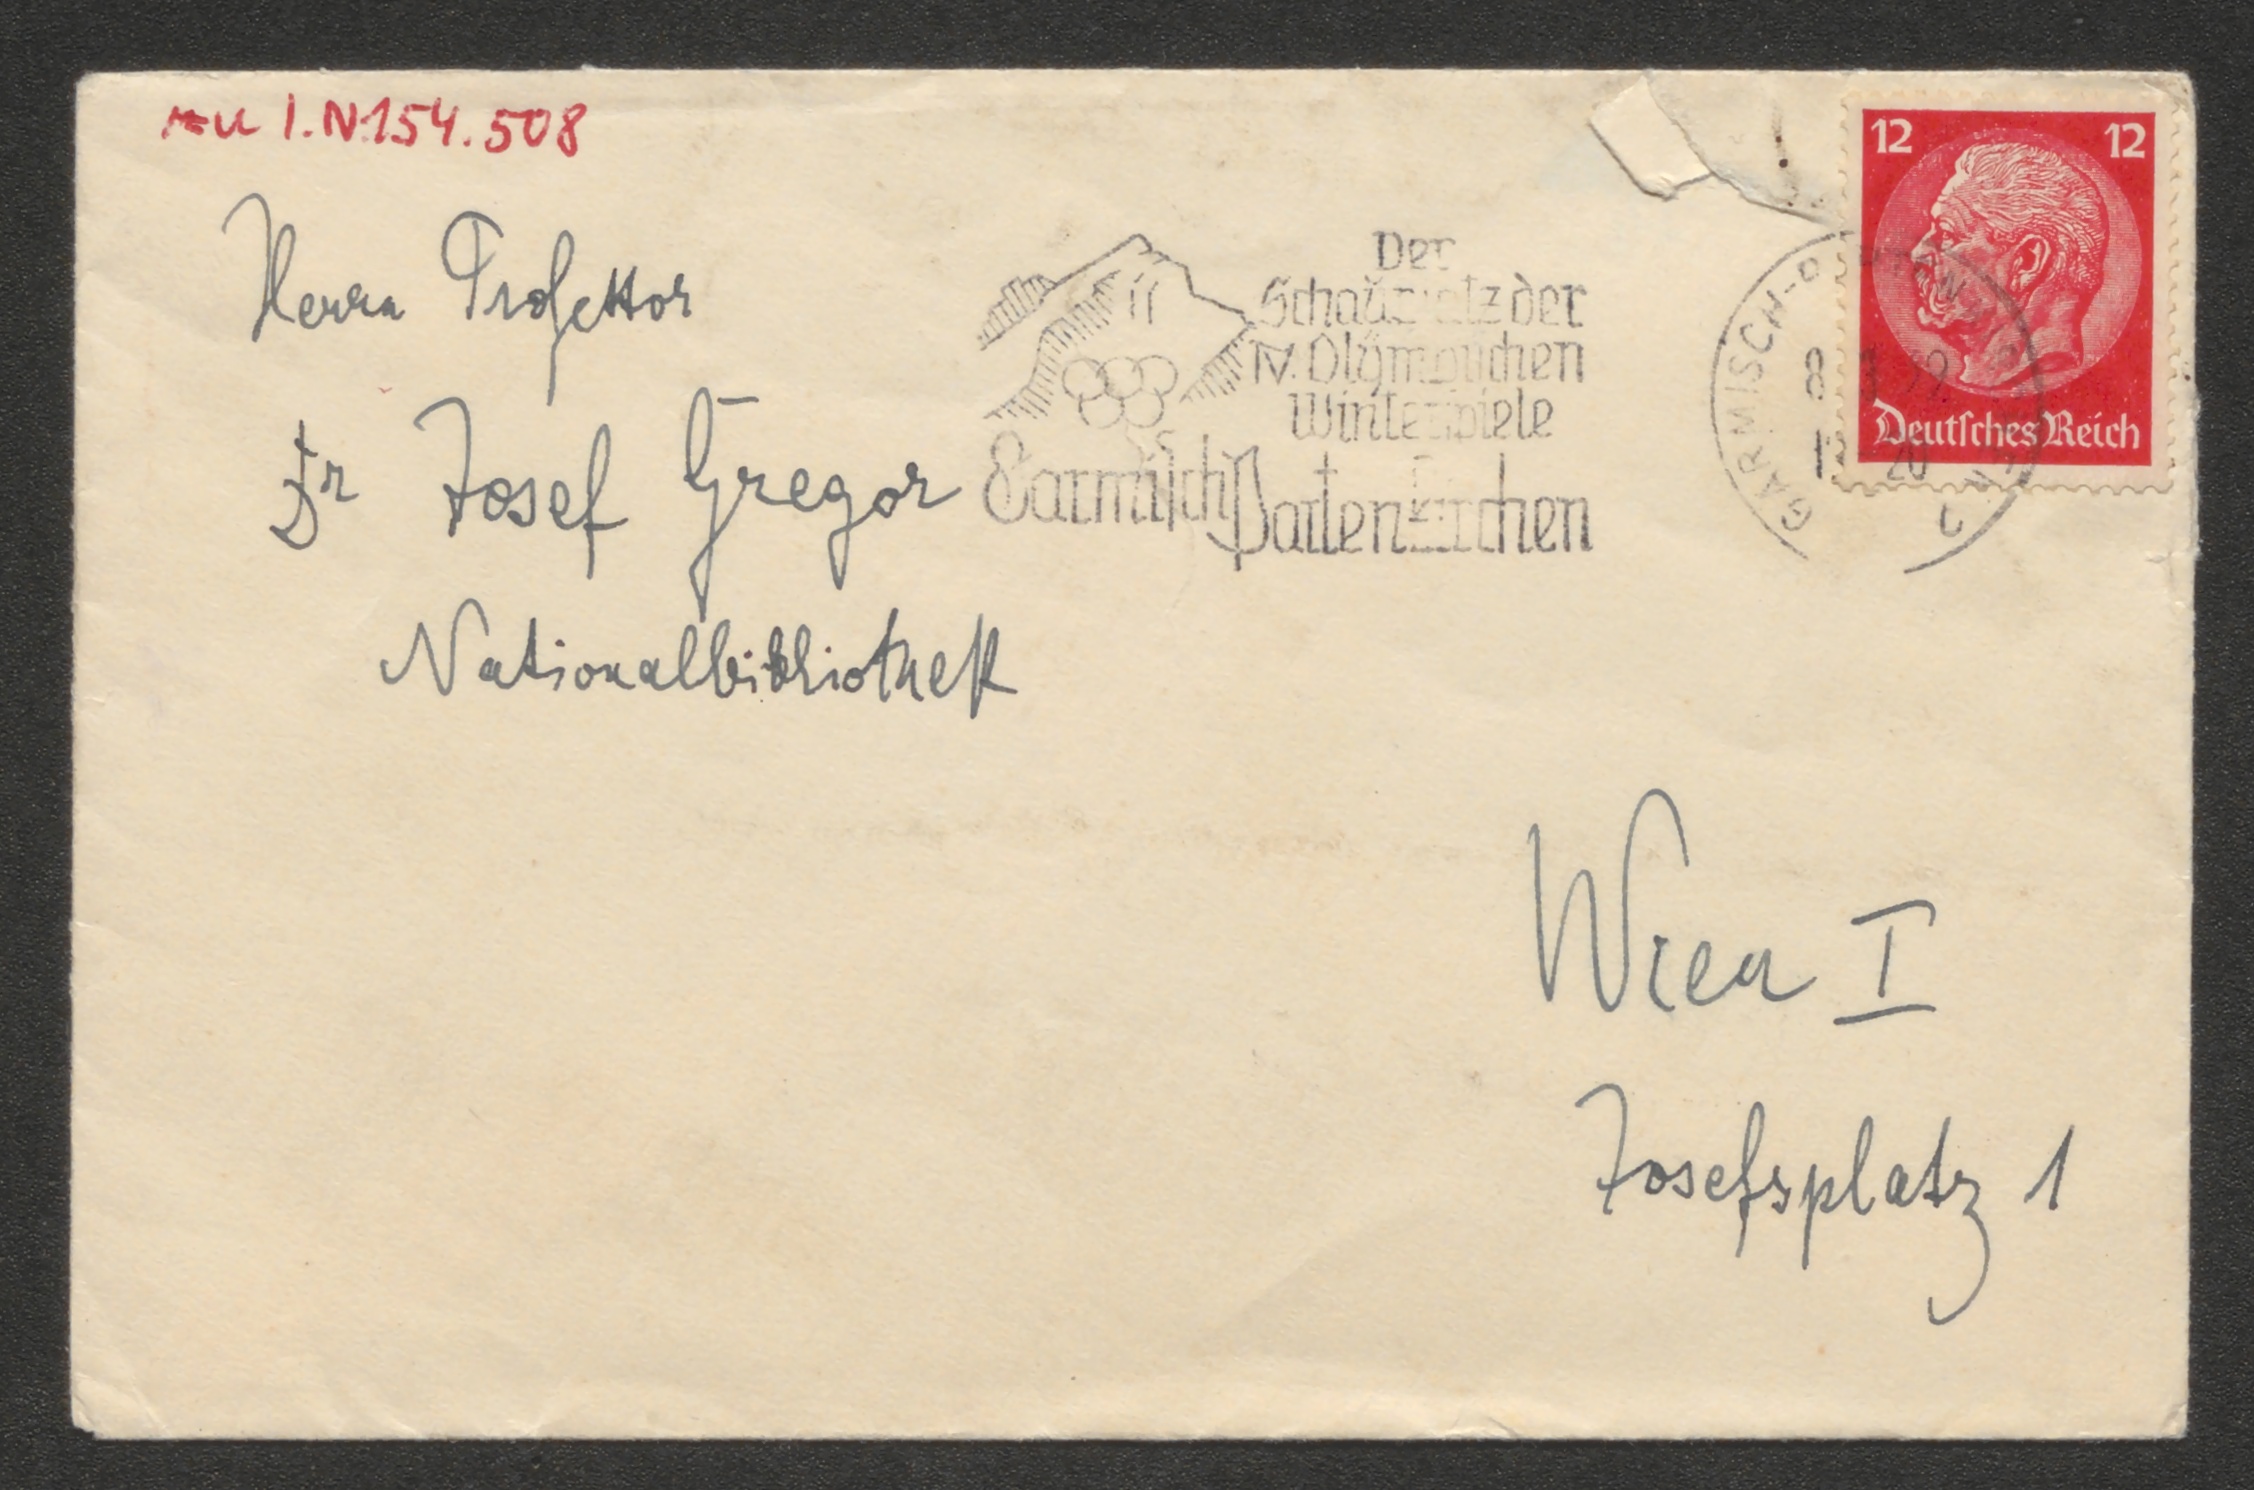 I.N.154.508
12 12
Deutsches Reich
Herrn Professor
Dr Josef Gregor
Nationalbibliothek
Der
Schauplatz der
IV. Olympischen
Winterspiele
Garmisch
Partenkirchen
GARMISCH-PARTENKIRCHEN
20
Wien I
Josefsplatz 1